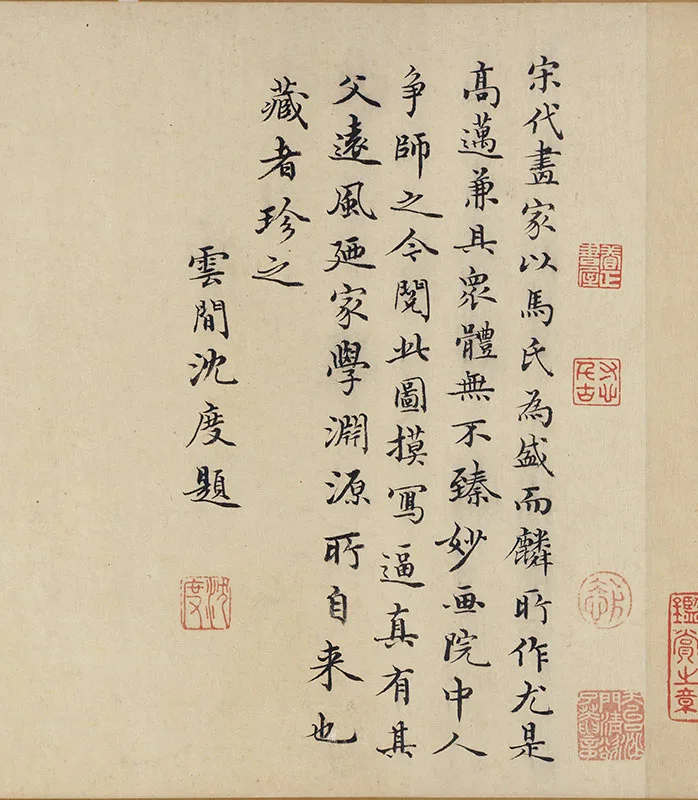 宋代畫家以馬氏為盛而麟所作尤是
高邁兼具衆體無不臻妙画院中人
争師之今閱此圖摸寫逼真有其
父遠風廼家學淵源所自来也
藏者珍之
雲間沈度題
沈度
鑑賞之章